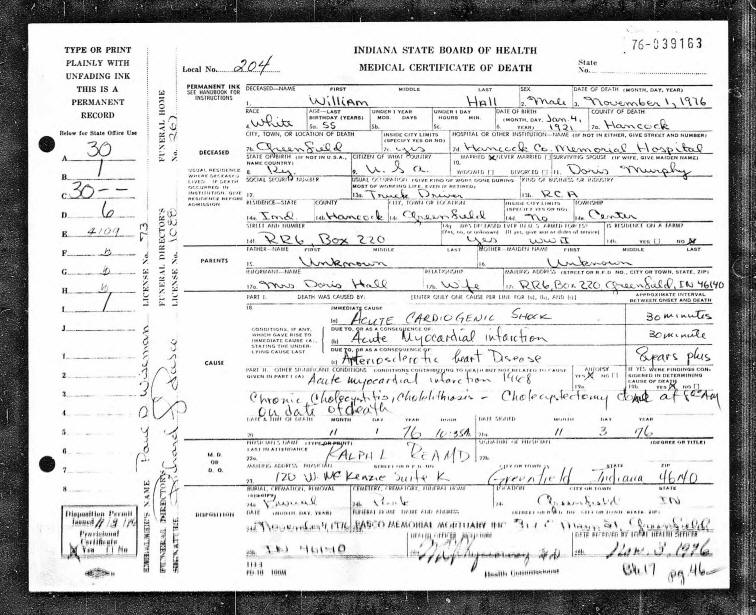 76-039163
INDIANA STATE BOARD OF HEALTH
MEDICAL CERTIFICATE OF DEATH
Local No. 204
State No.
TYPE OR PRINT
PLAINLY WITH
UNFADING INK
THIS IS A
PERMANENT
RECORD
Below for State Office Use
A 30
B 1
C 30--
D 6
E 4109
F
G
H
I 1
J
1
2
3
4
5
6
7
8
Disposition Permit
Issued
Provisional
Certificate
Yes [ ] No
EMBALMER'S NAME Paul D. Wiseman LICENSE No. 73
FUNERAL DIRECTOR'S SIGNATURE
FUNERAL DIRECTOR'S LICENSE No. 1088
FUNERAL HOME No. 267
PERMANENT INK
SEE HANDBOOK FOR
INSTRUCTIONS
DECEASED—NAME FIRST MIDDLE LAST SEX DATE OF DEATH (MONTH, DAY, YEAR)
1. William Hall 2. Male 3. November 1, 1976
RACE AGE—LAST BIRTHDAY (YEARS) UNDER 1 YEAR MOS. DAYS UNDER 1 DAY HOURS MIN. DATE OF BIRTH (MONTH, DAY, YEAR) COUNTY OF DEATH
4. White 5a. 55 Jan. 4, 1921 7a. Hancock
CITY, TOWN, OR LOCATION OF DEATH INSIDE CITY LIMITS (SPECIFY YES OR NO) HOSPITAL OR INSTITUTION—NAME (IF NOT IN EITHER, GIVE STREET AND NUMBER)
7b. Greenfield 7c. yes 7d. Hancock Co. Memorial Hospital
DECEASED
USUAL RESIDENCE
WHERE DECEASED
LIVED. IF DEATH
OCCURRED IN
INSTITUTION, GIVE
RESIDENCE BEFORE
ADMISSION
STATE OF BIRTH (IF NOT IN U.S.A., NAME COUNTRY) CITIZEN OF WHAT COUNTRY MARRIED NEVER MARRIED WIDOWED DIVORCED SURVIVING SPOUSE (IF WIFE, GIVE MAIDEN NAME)
8. Ky. 9. U.S.A 11. Doris Murphy
SOCIAL SECURITY NUMBER USUAL OCCUPATION (GIVE KIND OF WORK DONE DURING MOST OF WORKING LIFE, EVEN IF RETIRED) KIND OF BUSINESS OR INDUSTRY
12. 13a. Truck Driver 13b. RCA
RESIDENCE—STATE COUNTY CITY, TOWN OR LOCATION INSIDE CITY LIMITS (SPECIFY YES OR NO) TOWNSHIP
14a. Ind. 14b. Hancock 14c. Greenfield 14d. No 14e. Center
STREET AND NUMBER WAS DECEASED EVER IN U.S. ARMED FORCES? IS RESIDENCE ON A FARM?
14f. RR6, Box 220 yes WWII YES [ ] NO
PARENTS
FATHER—NAME FIRST MIDDLE LAST MOTHER—MAIDEN NAME FIRST MIDDLE LAST
15. Unknown 16. Unknown
INFORMANT—NAME RELATIONSHIP MAILING ADDRESS (STREET OR R.F.D. NO., CITY OR TOWN, STATE, ZIP)
17a. Mrs Doris Hall 17b. Wife 17c. RR6, Box 220, Greenfield, IN 46140
PART I. DEATH WAS CAUSED BY: [ENTER ONLY ONE CAUSE PER LINE FOR (a), (b), AND (c)] APPROXIMATE INTERVAL BETWEEN ONSET AND DEATH
18. IMMEDIATE CAUSE
(a) ACUTE CARDIOGENIC SHOCK 30 minutes
CONDITIONS, IF ANY,
WHICH GAVE RISE TO
IMMEDIATE CAUSE (a),
STATING THE UNDER-
LYING CAUSE LAST
DUE TO, OR AS A CONSEQUENCE OF:
(b) Acute Myocardial infarction 30 minute
DUE TO, OR AS A CONSEQUENCE OF:
(c) Arteriosclerotic heart Disease 8 years plus
CAUSE
PART II. OTHER SIGNIFICANT CONDITIONS CONDITIONS CONTRIBUTING TO DEATH BUT NOT RELATED TO CAUSE GIVEN IN PART I (A) AUTOPSY IF YES WERE FINDINGS CONSIDERED IN DETERMINING CAUSE OF DEATH
Acute myocardial infarction 1968 YES NO [ ]
Chronic Cholecystitis, Cholelithiasis - Cholecystectomy done at
on date of death
DATE & TIME OF DEATH MONTH DAY YEAR HOUR DATE SIGNED MONTH DAY YEAR
11 1 76 10:35A 11 3 76
M.D. OR D.O.
PHYSICIAN'S NAME (TYPE OR PRINT) LAST IN ATTENDANCE SIGNATURE OF PHYSICIAN (DEGREE OR TITLE)
22a. RALPH L REA MD
MAILING ADDRESS—PHYSICIAN STREET OR R.F.D. NO. CITY OR TOWN STATE ZIP
120 W. McKenzie Suite K Greenfield Indiana 46140
DISPOSITION
BURIAL, CREMATION, REMOVAL (SPECIFY) CEMETERY, CREMATORY, FUNERAL HOME LOCATION CITY OR TOWN STATE
24a. Burial Park Greenfield IN
DATE (MONTH, DAY, YEAR) FUNERAL HOME NAME AND ADDRESS (STREET OR R.F.D. NO., CITY OR TOWN, STATE, ZIP)
November 4, 1976 PASCO MEMORIAL MORTUARY INC Main St, Greenfield
IN 46140 HEALTH OFFICER SIGNATURE DATE RECEIVED BY LOCAL HEALTH OFFICER
Nov. 3, 1976
Health Commissioner
Bk 17 pg. 46